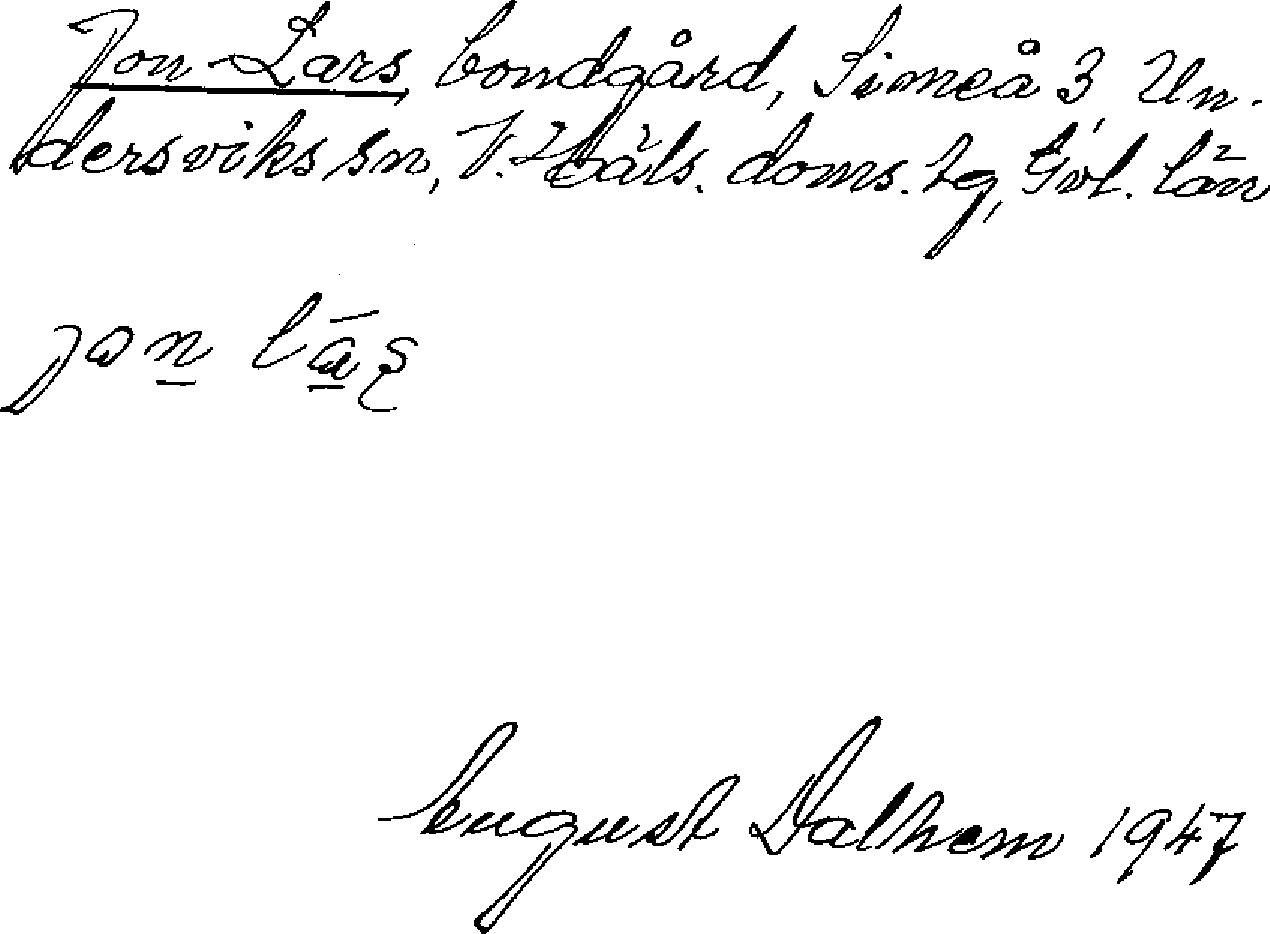 Jon-Lars, bondgård, Simeå 3, Un-
dersviks sn, V. Häls. doms. tg, Gvl. län
jon las
August Dalhem 1947